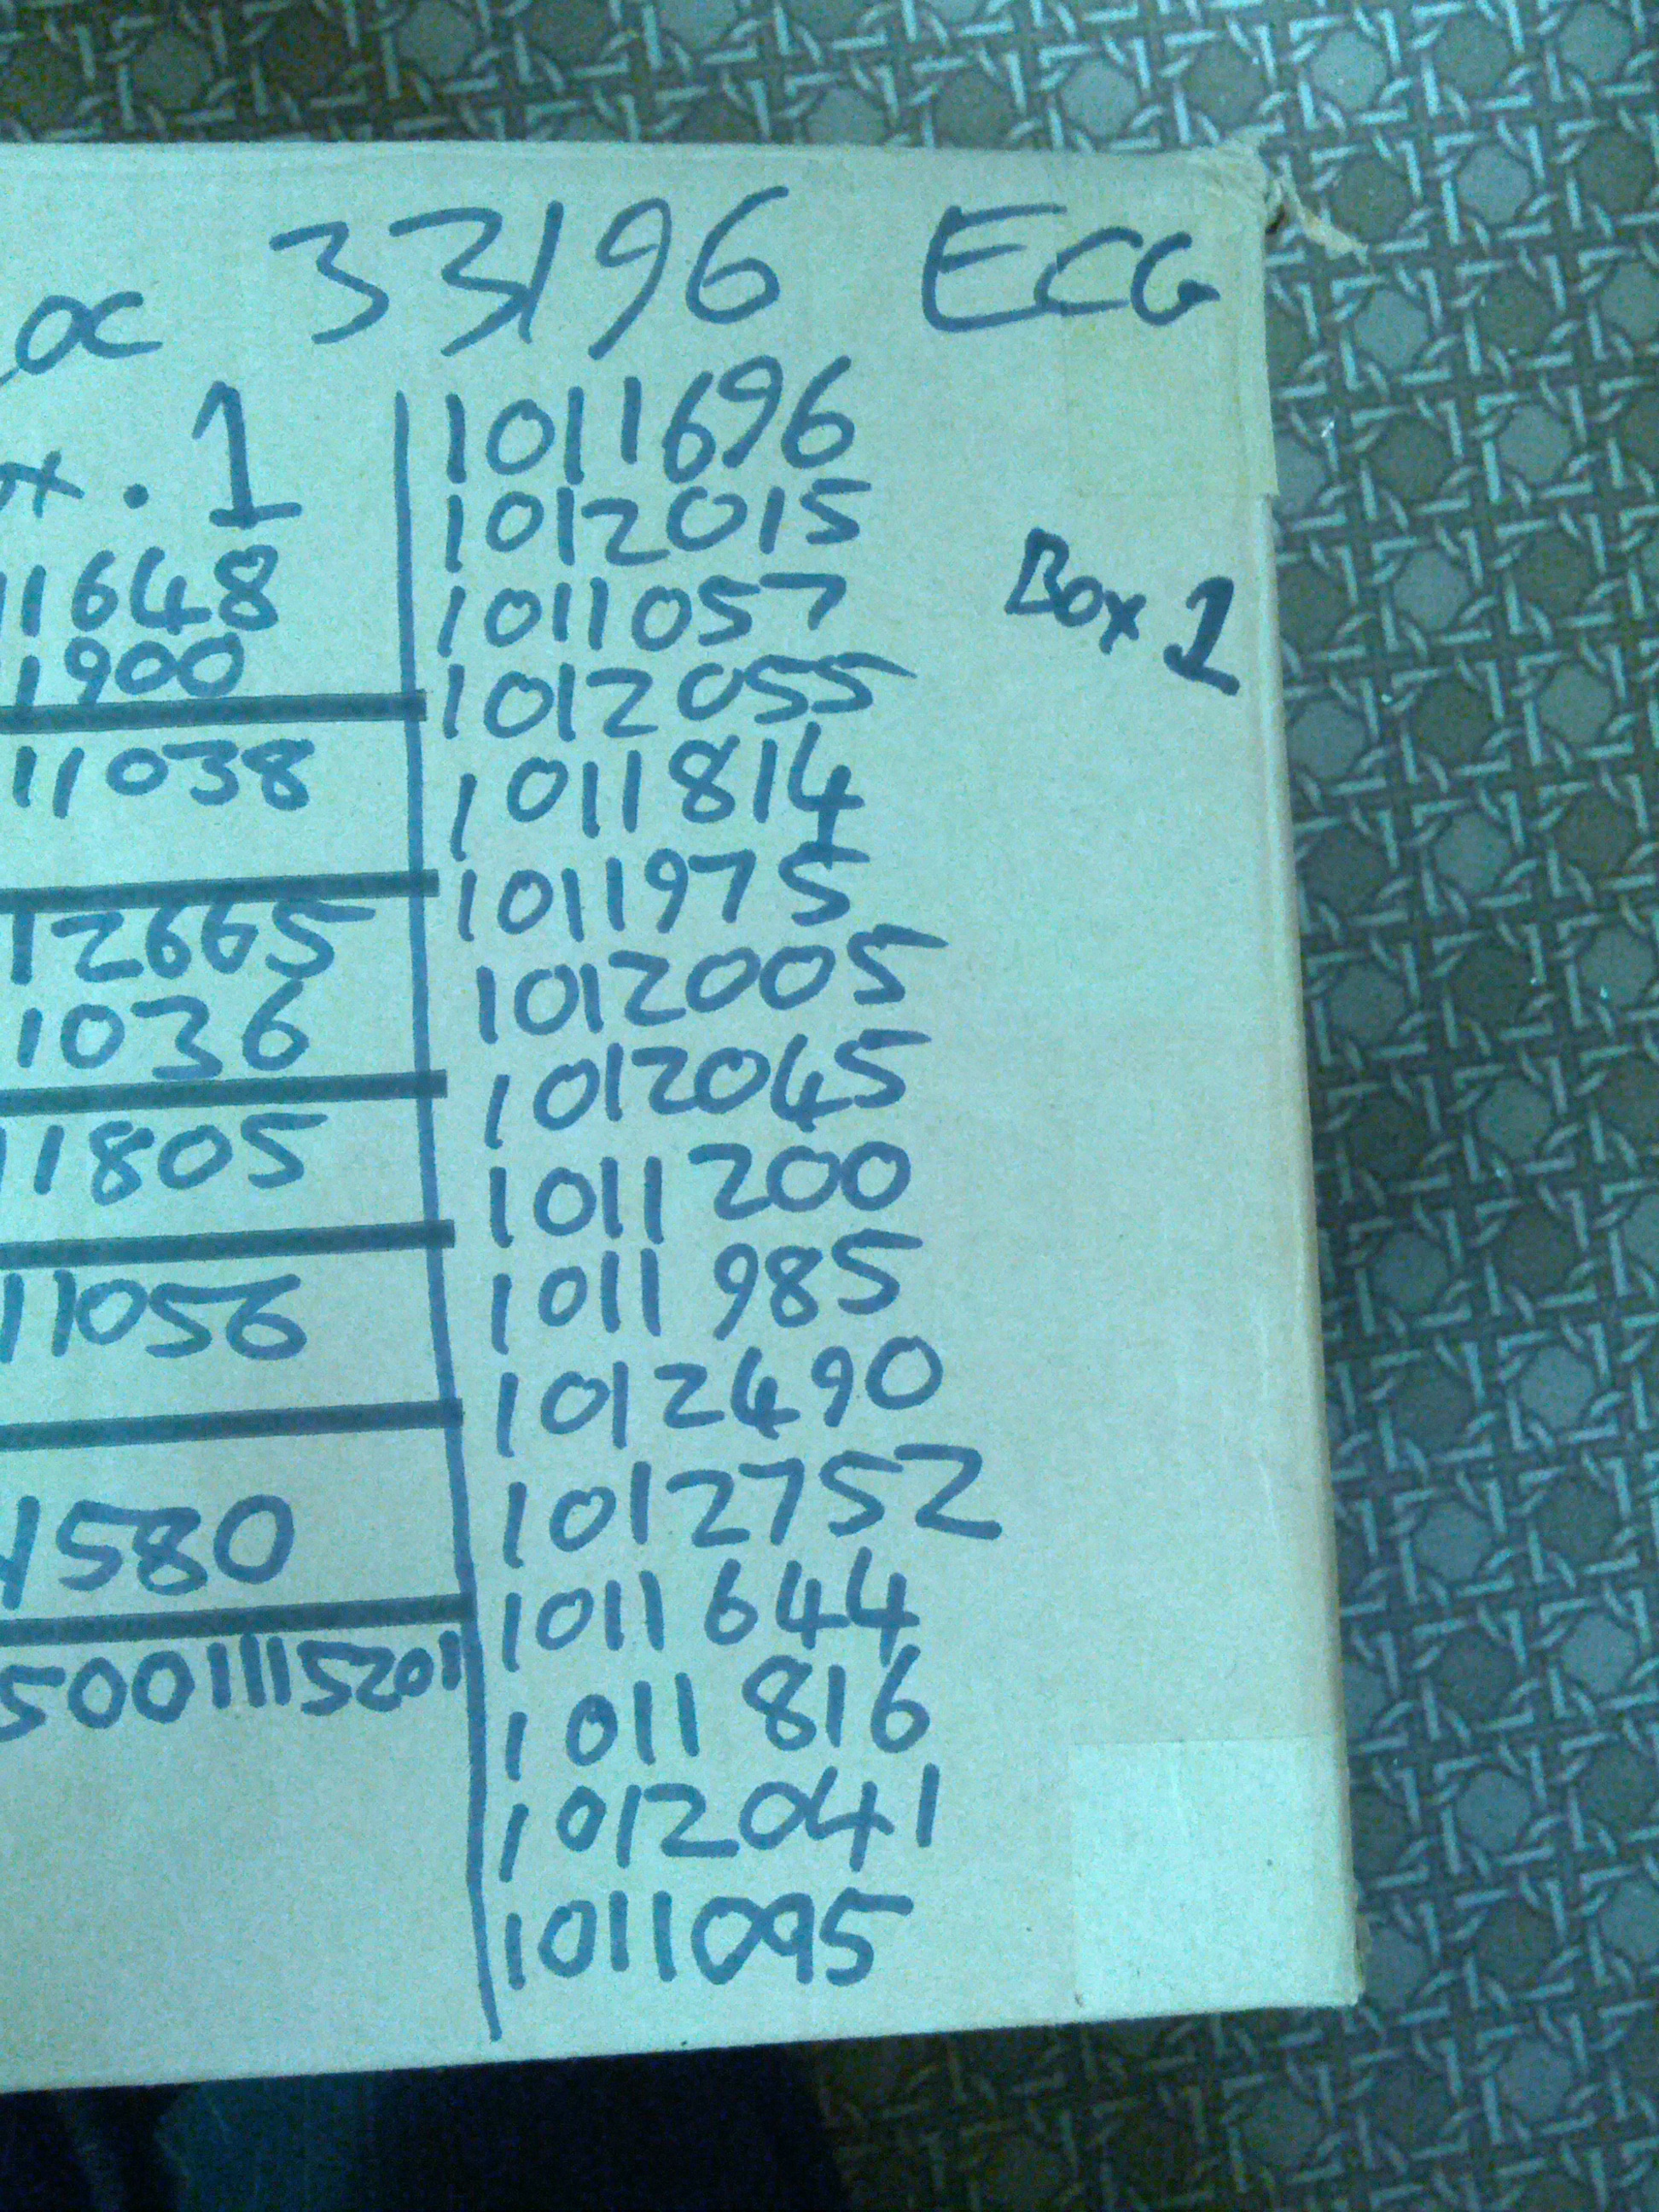 oc 33196 ECG
x . 1
11648
1900
11038
12665
1036
11805
11056
1580
5001115201
1011696
1012015
1011057
1012055
1011814
1011975
1012005
1012045
1011200
1011985
1012490
1012752
1011644
1011816
1012041
1011095
Box 1